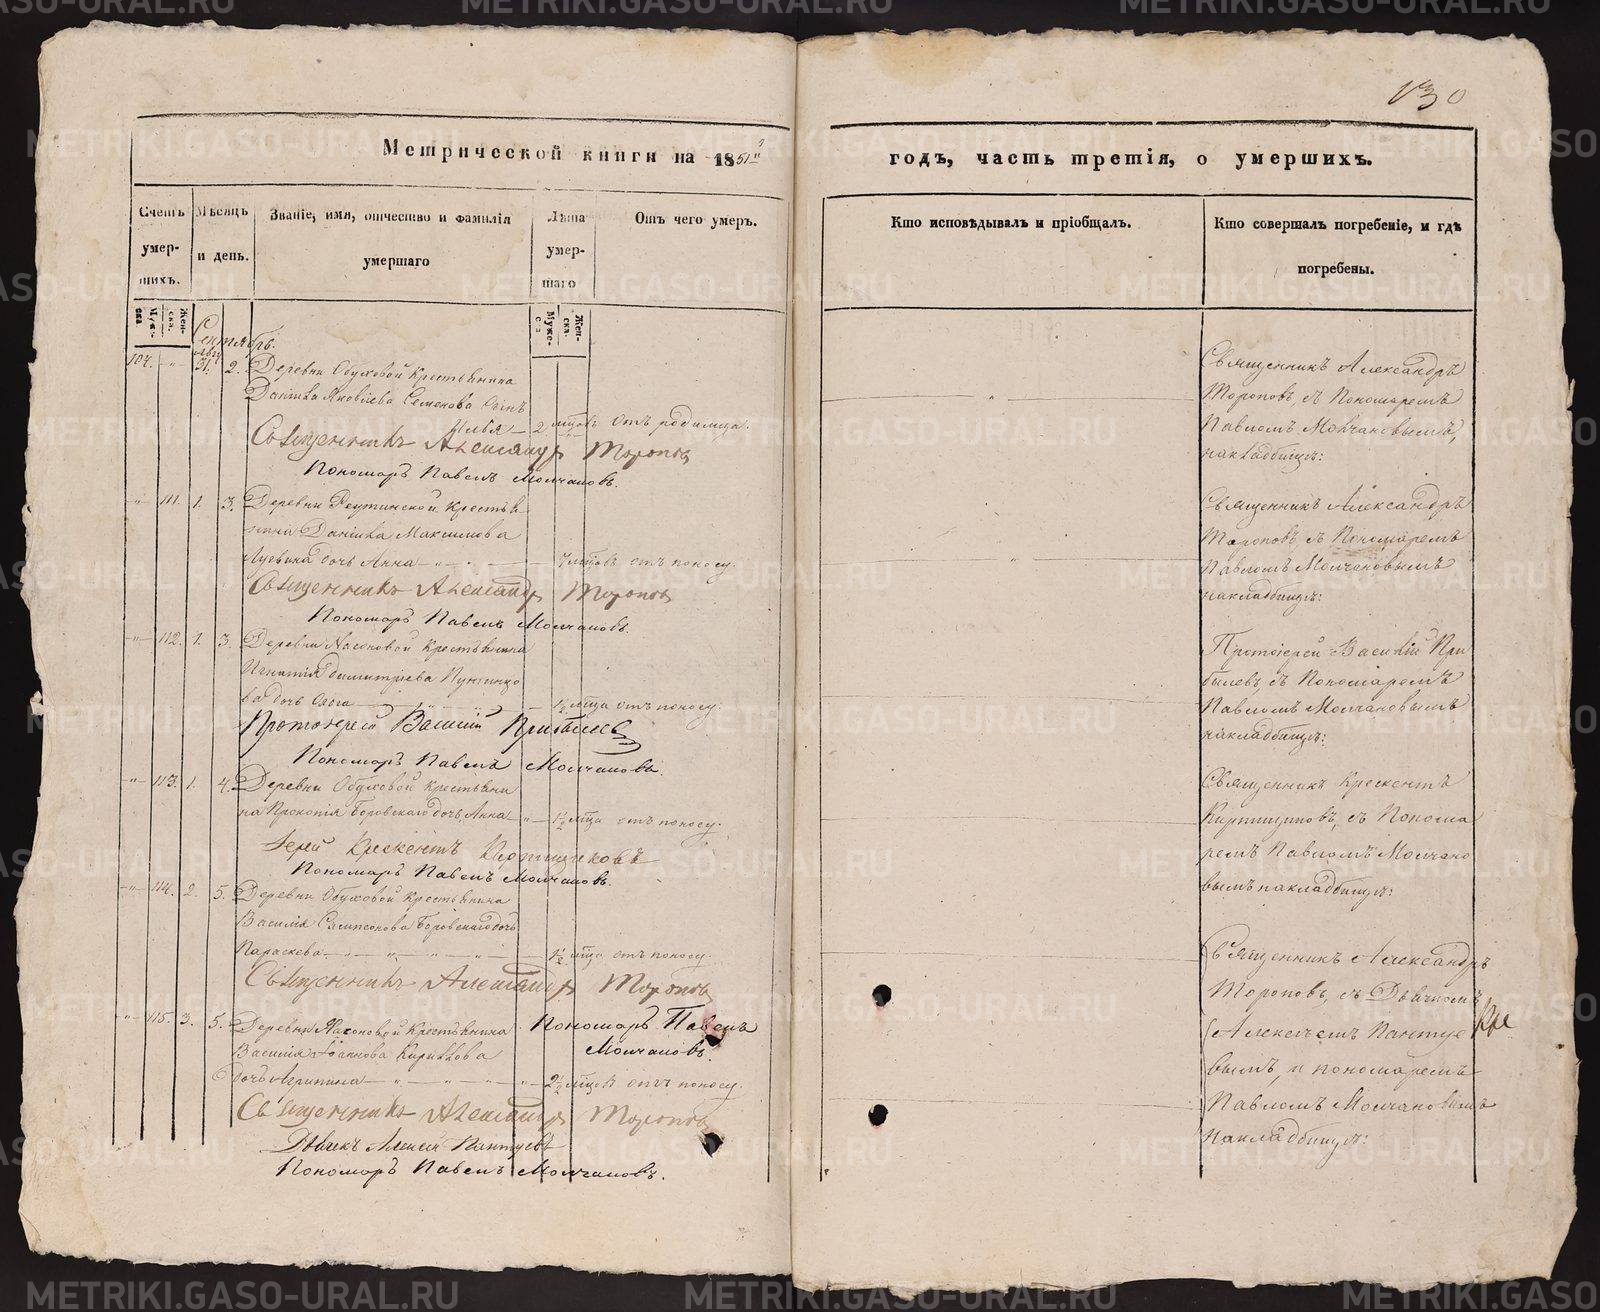 130
Метрической книги на 1851й
годъ, часть третія, о умершихъ.
Счетъ умер-шихъ.
Мѣсяцъ и день.
Званіе, имя, отчество и фамилія умершаго
Лѣта умер-шаго
Отъ чего умер.
Кто исповѣдывалъ и пріобщалъ.
Кто совершалъ погребеніе, и гдѣ погребены.
Муже-ска
Жен-ска.
Муже-ска
Жен-ска.
Сентябрь.
104. 31. 2. Деревни Обуховой Крестьянина
Даніила Яковлева Семенова сынъ
Илья — 2 мѣцовъ отъ родимца.
Священникъ Александръ Торопов
Пономарь Павелъ Молчановъ.
Священникъ Александръ
Торопов, съ Пономаремъ
Павломъ Молчановымъ,
на кладбищѣ:
111. 1. 3. Деревни Реутинской Крестья
нина Даніила Максимова
дочь Анна — 7 мѣцовъ отъ поносу.
Священникъ Александръ Торопов
Пономарь Павелъ Молчановъ.
Священникъ Александръ
Торопов, съ Пономаремъ
Павломъ Молчановымъ
на кладбищѣ:
112. 1. 3. Деревни Насоновой Крестьянина
Игнатія Димитріева
ва дочь — 1½ мѣца отъ поносу.
Протоіерей Василій Прибылев
Пономарь Павелъ Молчановъ.
Протоіерей Василій При
былевъ, съ Пономаремъ
Павломъ Молчановымъ
на кладбищѣ:
113. 1. 4. Деревни Обуховой Крестьяни
на Прокопія Боровскаго дочь Анна — 1½ мѣца отъ поносу.
Іерей Крескентъ Кирпищиковъ
Пономарь Павелъ Молчановъ.
Священникъ Крескентъ
Кирпищиковъ, съ Понома
ремъ Павломъ Молчано
вымъ на кладбищѣ:
114. 2. 5. Деревни Обуховой Крестьянина
Василія Сампсонова Боровскаго дочь
Параскева — 1½ мѣца отъ поносу.
Священникъ Александръ Торопов
Пономарь Павелъ
Молчановъ.
Священникъ Александръ
Торопов, съ Дьячкомъ
Алексѣемъ Пантуе
вымъ, и пономаремъ
Павломъ Молчановымъ
на кладбищѣ:
115. 3. 5. Деревни Насоновой Крестьянина
Василія Іоаннова Кириллова
дочь Агрипина — 2½ мѣцовъ отъ поносу.
Священникъ Александръ Торопов
Дьячекъ Алексѣй Пантуевъ
Пономарь Павелъ Молчановъ.
METRIKI.GASO-URAL.RU